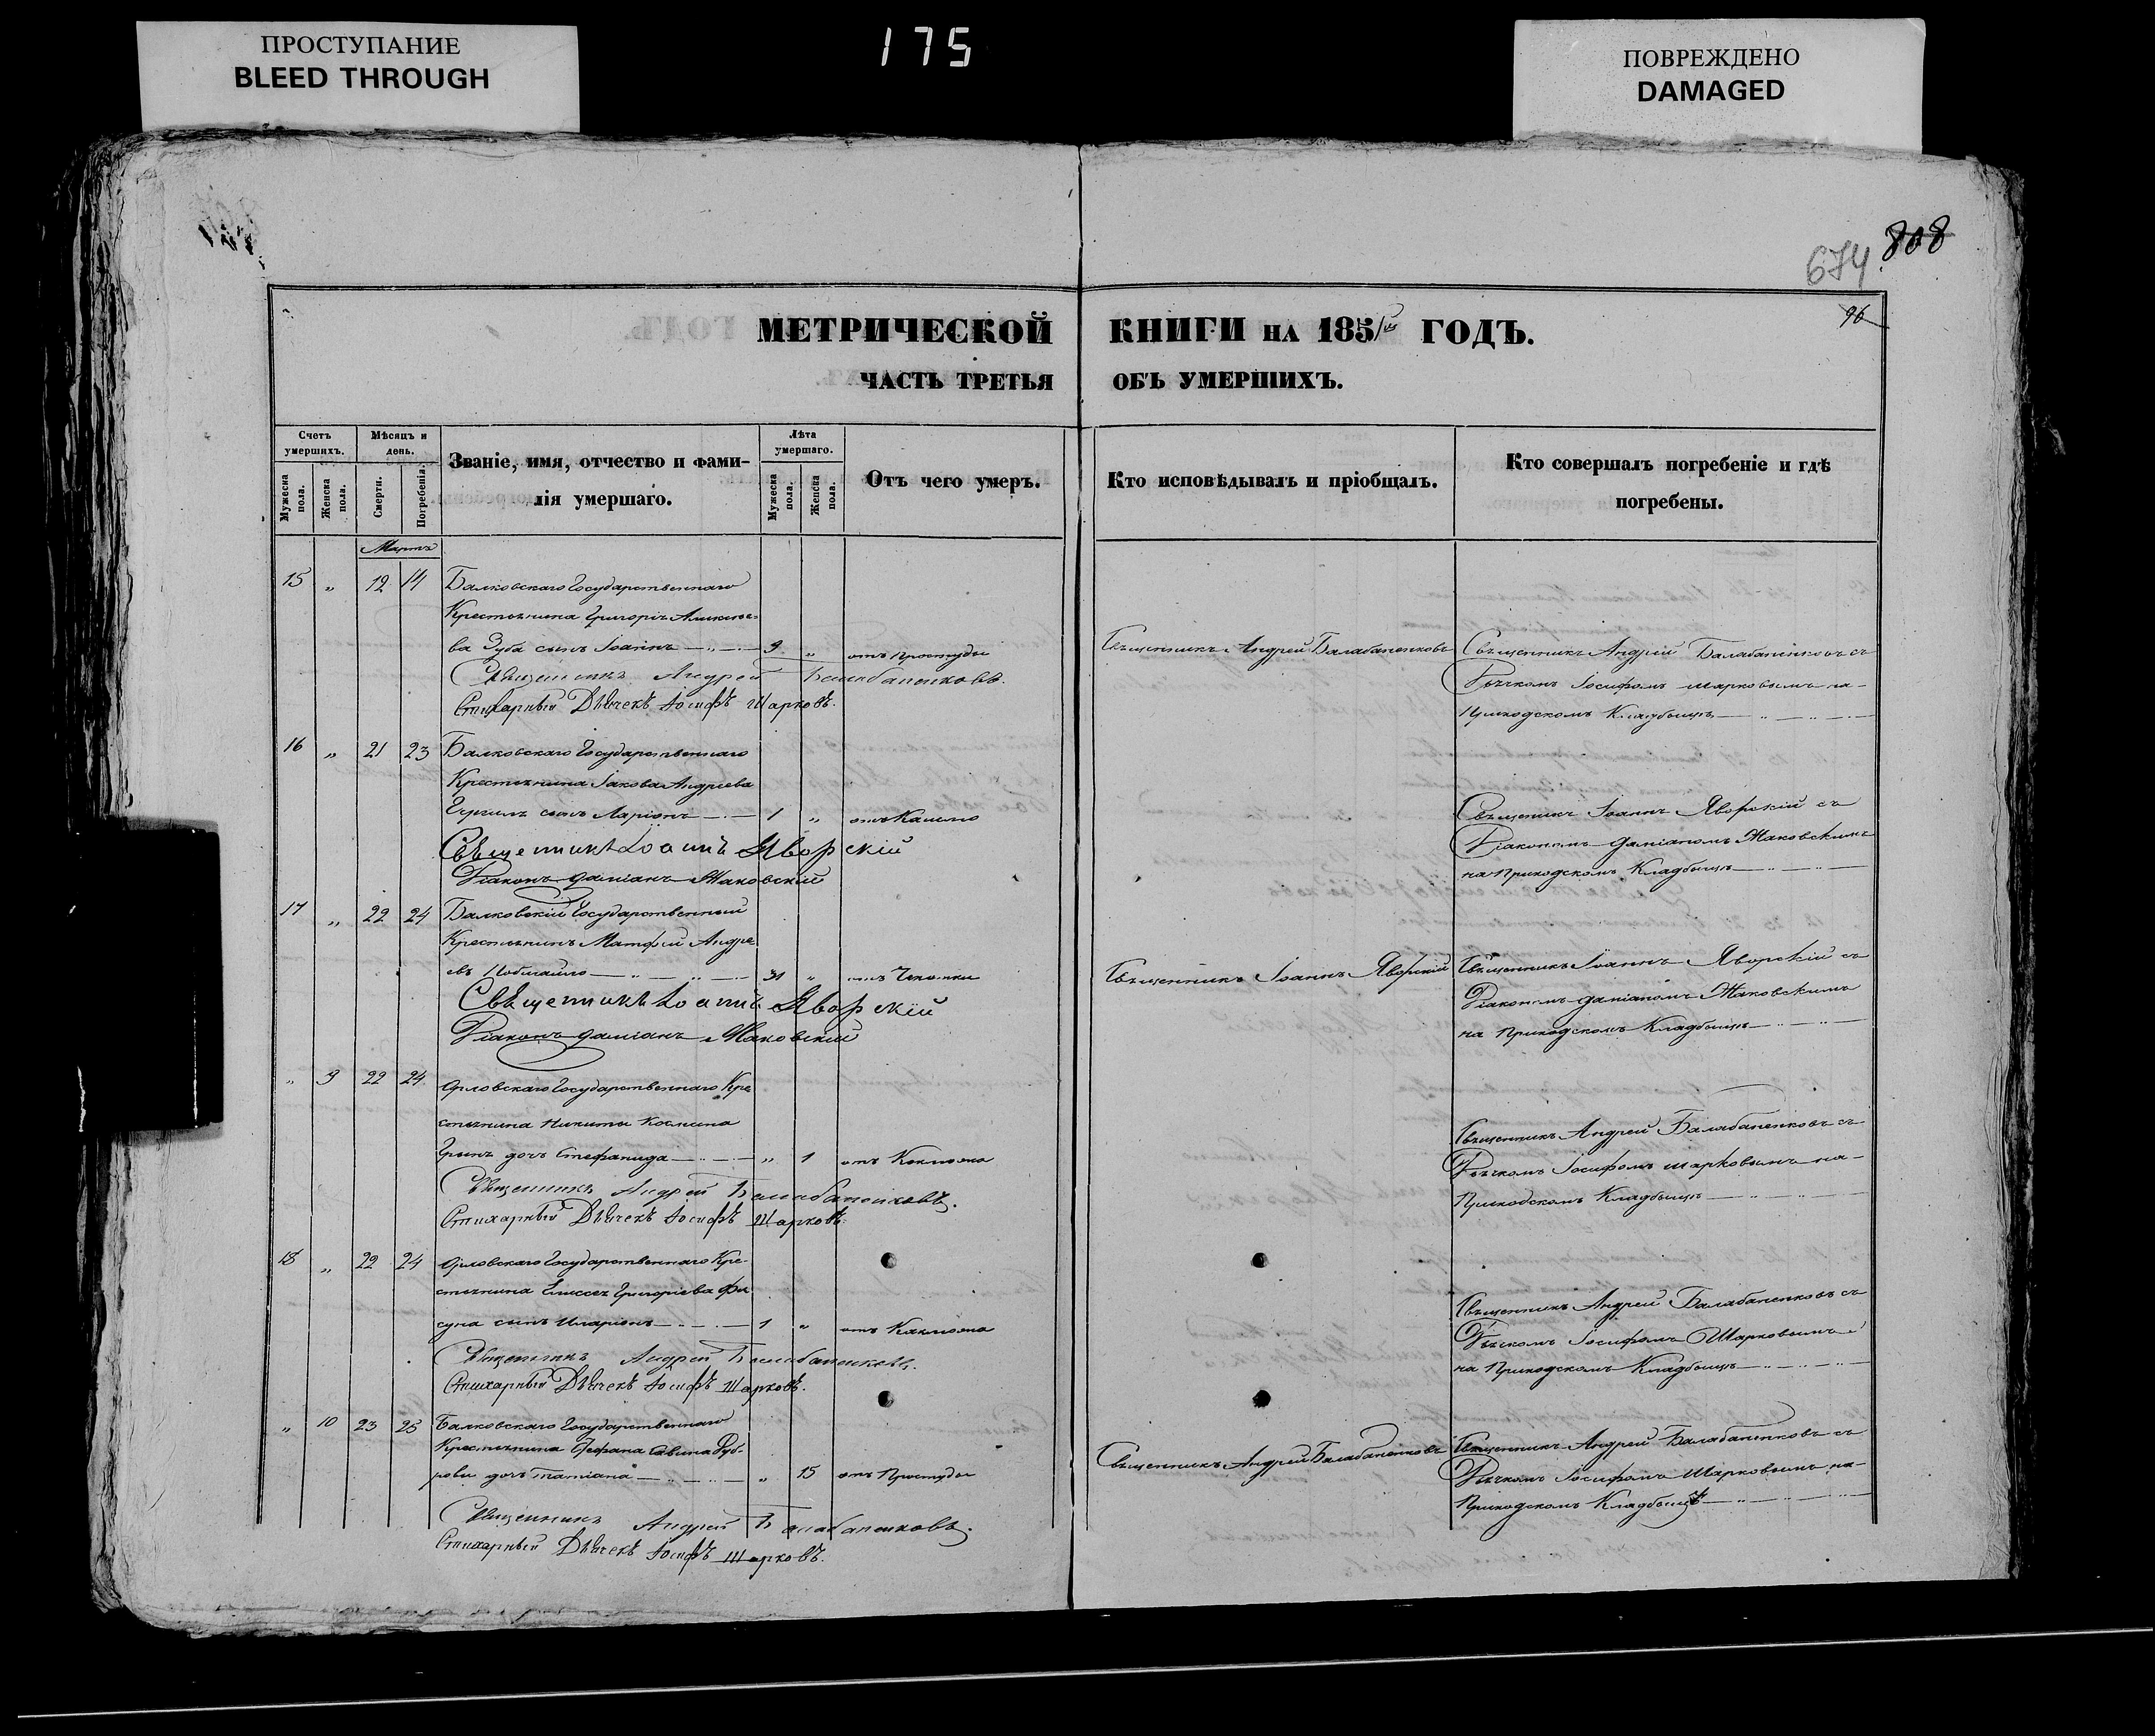 ПРОСТУПАНИЕ
BLEED THROUGH
175
ПОВРЕЖДЕНО
DAMAGED
808
674
96
МЕТРИЧЕСКОЙ КНИГИ НА 1851 ГОДЪ.
ЧАСТЬ ТРЕТЬЯ ОБЪ УМЕРШИХЪ.
Счетъ умершихъ.
Мужеска пола.
Женска пола.
Мѣсяцъ и день.
Смерти.
Погребенія.
Званіе, имя, отчество и фами-
лія умершаго.
Лѣта умершаго.
Мужеска пола.
Женска пола.
Отъ чего умеръ.
Кто исповѣдывалъ и пріобщалъ.
Кто совершалъ погребеніе и гдѣ
погребены.
Мартъ
15 „ 12 14 Балковскаго Государственнаго
Крестьянина Григорія Алексѣе-
ва Зуба сынъ Іоаннъ 9 „ отъ простуды
Священникъ Андрей Балабаненковъ Священникъ Андрей Балабаненковъ съ
Дьячкомъ Іосифомъ Шарковымъ на
Приходскомъ Кладбищѣ
Священникъ Андрей Балабаненковъ.
Стихарный Дьячекъ Іосифъ Шарковъ.
16 „ 21 23 Балковскаго Государственнаго
Крестьянина Іакова Андреева
сынъ Ларіонъ 1 „ отъ Кашлю
Священникъ Іоаннъ Яворскій съ
Діакономъ Даміаномъ Маковскимъ
на Приходскомъ Кладбищѣ
Священникъ Іоаннъ Яворскій
Діаконъ Даміанъ Маковскій
17 „ 22 24 Балковскій Государственный
Крестьянинъ Матфей Андре
евъ 31 „ отъ Чахотки
Священникъ Іоаннъ Яворскій Священникъ Іоаннъ Яворскій съ
Діакономъ Даміаномъ Маковскимъ
на Приходскомъ Кладбищѣ
Священникъ Іоаннъ Яворскій
Діаконъ Даміанъ Маковскій
„ 9 22 24 Орловскаго Государственнаго Кре
стьянина Никиты Космина
дочь Стефанида „ 1 отъ
Священникъ Андрей Балабаненковъ съ
Дьячкомъ Іосифомъ Шарковымъ на
Приходскомъ Кладбищѣ
Священникъ Андрей Балабаненковъ.
Стихарный Дьячекъ Іосифъ Шарковъ.
18 „ 22 24 Орловскаго Государственнаго Кре-
стьянина Елисея Григоріева Фи
суна сынъ Иларіонъ 1 „ отъ
Священникъ Андрей Балабаненковъ съ
Дьячкомъ Іосифомъ Шарковымъ
на Приходскомъ Кладбищѣ
Священникъ Андрей Балабаненковъ.
Стихарный Дьячекъ Іосифъ Шарковъ.
„ 10 23 25 Балковскаго Государственнаго
Крестьянина Савина Дуб-
рова дочь Татіана „ 15 отъ Простуды
Священникъ Андрей Балабаненковъ Священникъ Андрей Балабаненковъ съ
Дьячкомъ Іосифомъ Шарковымъ на
Приходскомъ Кладбищѣ
Священникъ Андрей Балабаненковъ.
Стихарный Дьячекъ Іосифъ Шарковъ.